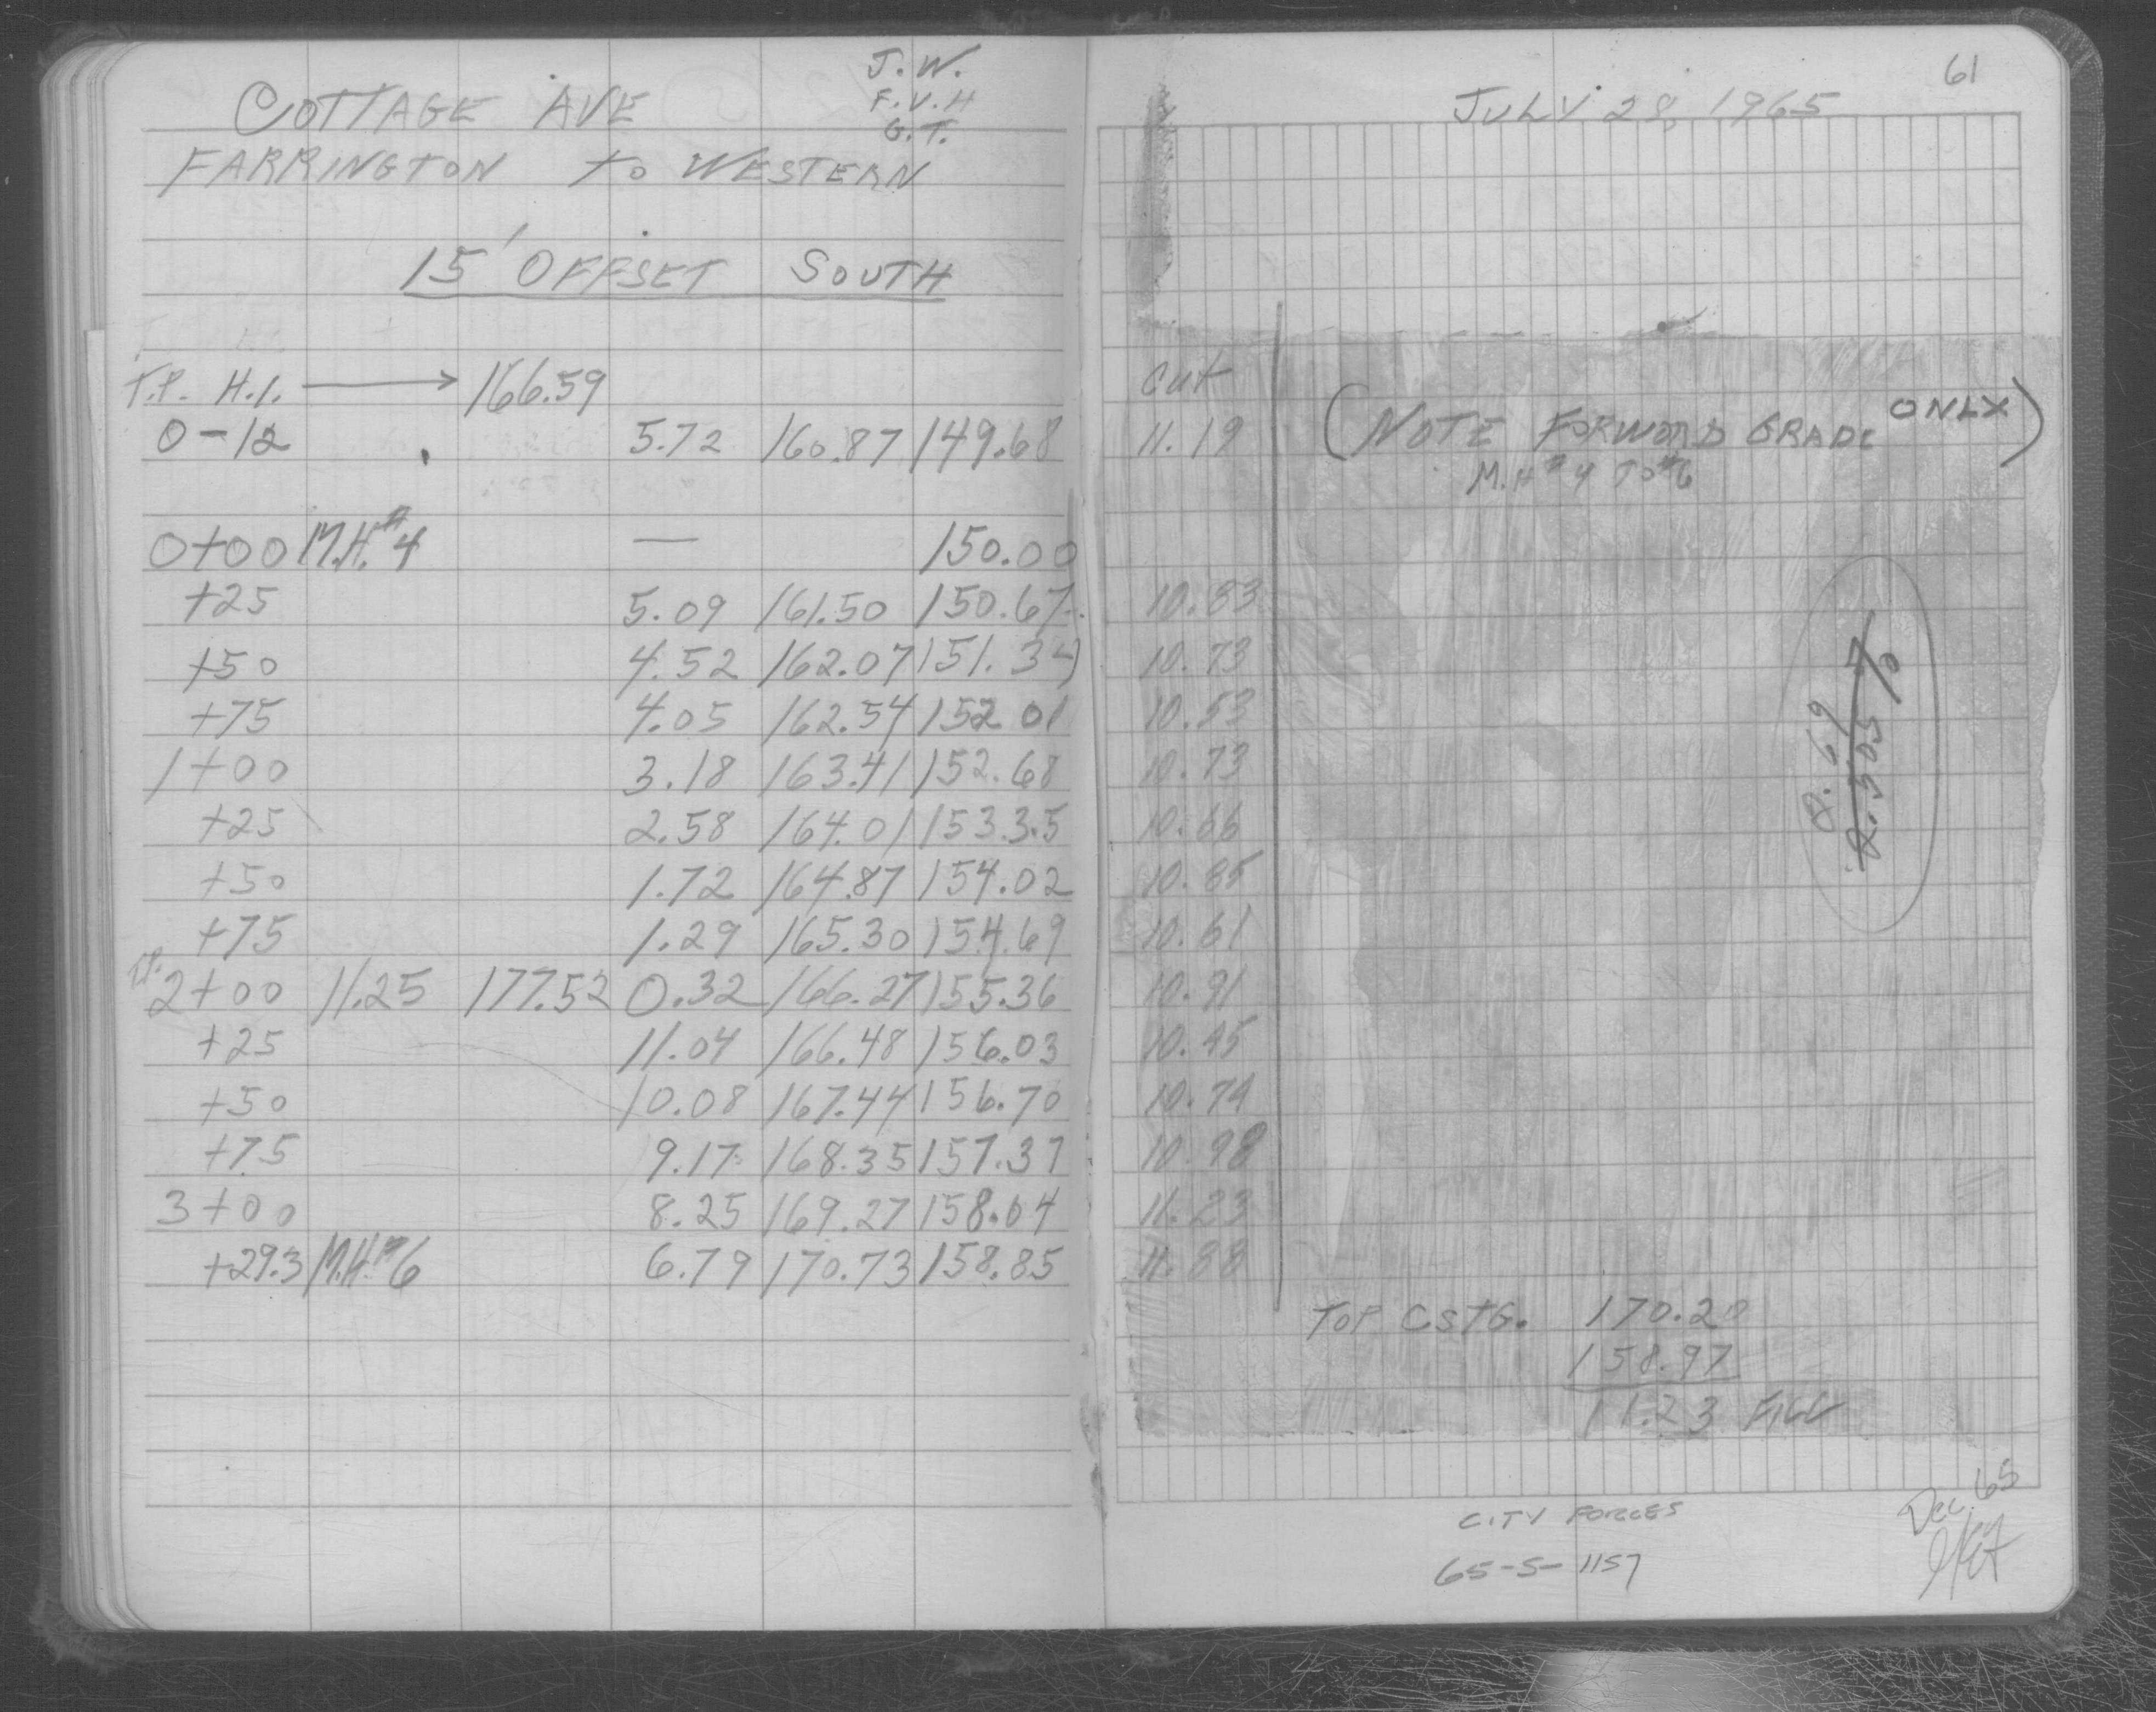 COTTAGE AVE
J.W.
F.V.H
G.T.
FARRINGTON TO WESTERN
15' OFFSET SOUTH
T.P. H.I. → 166.59
0-12 5.72 160.87 149.68
0+00 M.H.#4 — 150.00
+25 5.09 161.50 150.67
+50 4.52 162.07 151.34
+75 4.05 162.54 152.01
1+00 3.18 163.41 152.68
+25 2.58 164.01 153.35
+50 1.72 164.87 154.02
+75 1.29 165.30 154.69
T.P.
2+00 11.25 177.52 0.32 166.27 155.36
+25 11.04 166.48 156.03
+50 10.08 167.44 156.70
+75 9.17 168.35 157.37
3+00 8.25 169.27 158.04
+29.3 M.H.#6 6.79 170.73 158.85
61
JULY 28, 1965
Cut
11.19
(NOTE FORWORD GRADE ONLY)
M.H #4 TO #6
10.83
10.73
10.53
10.73
10.66
10.85
10.61
10.91
10.45
10.74
10.98
11.23
11.88
2.69
2.505 %
TOP CSTG. 170.20
158.97
11.23 FILL
CITY FORCES
65-S-1157
Dec. 65